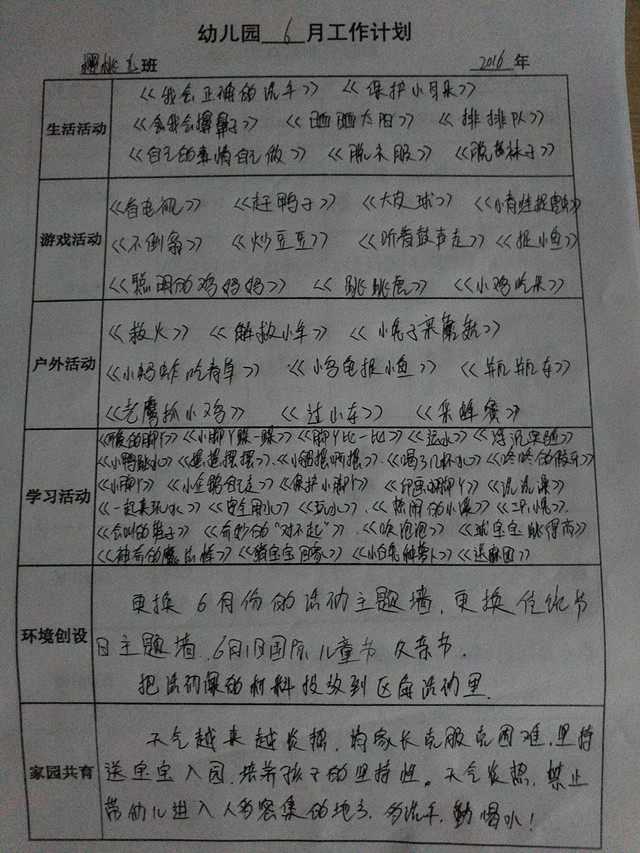 幼儿园 6 月工作计划
樱桃 班 2016 年
生活活动
《我会正确的洗手》 《保护小耳朵》
《我会擤鼻子》 《晒晒太阳》 《排排队》
《自己的事情自己做》 《脱衣服》 《脱袜子》
游戏活动
《看电视》 《赶鸭子》 《大皮球》 《小青蛙捉害虫》
《不倒翁》 《炒豆豆》 《听着鼓声走》 《捉小鱼》
《聪明的鸡妈妈》 《跳跳虎》 《小鸡吃米》
户外活动
《救火》 《解救小车》 《小兔子采蘑菇》
《小蚂蚱吃青草》 《小乌龟捉小鱼》 《瓶瓶车》
《老鹰抓小鸡》 《过小车》 《采蜂蜜》
学习活动
《 的脚丫》《小脚丫踩一踩》《脚丫比一比》《运水》《浮沉实验》
《小鸭跳水》《摇摇摆摆》《小翅摆呀摆》《喝了几杯水》《咚咚的 》
《小脚丫》《小企鹅 走》《保护小脚丫》《印画 脚丫》《洗洗澡》
《一起来玩水》《安全用水》《玩水》《热闹的小溪》《 》
《会叫的鞋子》《奇妙的"对不起"》《吹泡泡》《球宝宝跳得高》
《神奇的魔法棒》《鞋宝宝回家》《小白兔种萝卜》《送 》
环境创设
更换6月份的活动主题墙,更换传统节
日主题墙,6月1日国际儿童节,父亲节。
把活动课的材料投放到区角活动里。
家园共育
天气越来越炎热,为家长克服克困难,坚持
送宝宝入园,培养孩子的坚持性。天气炎热,禁止
带幼儿进入人多密集的地方,多洗手,勤喝水!